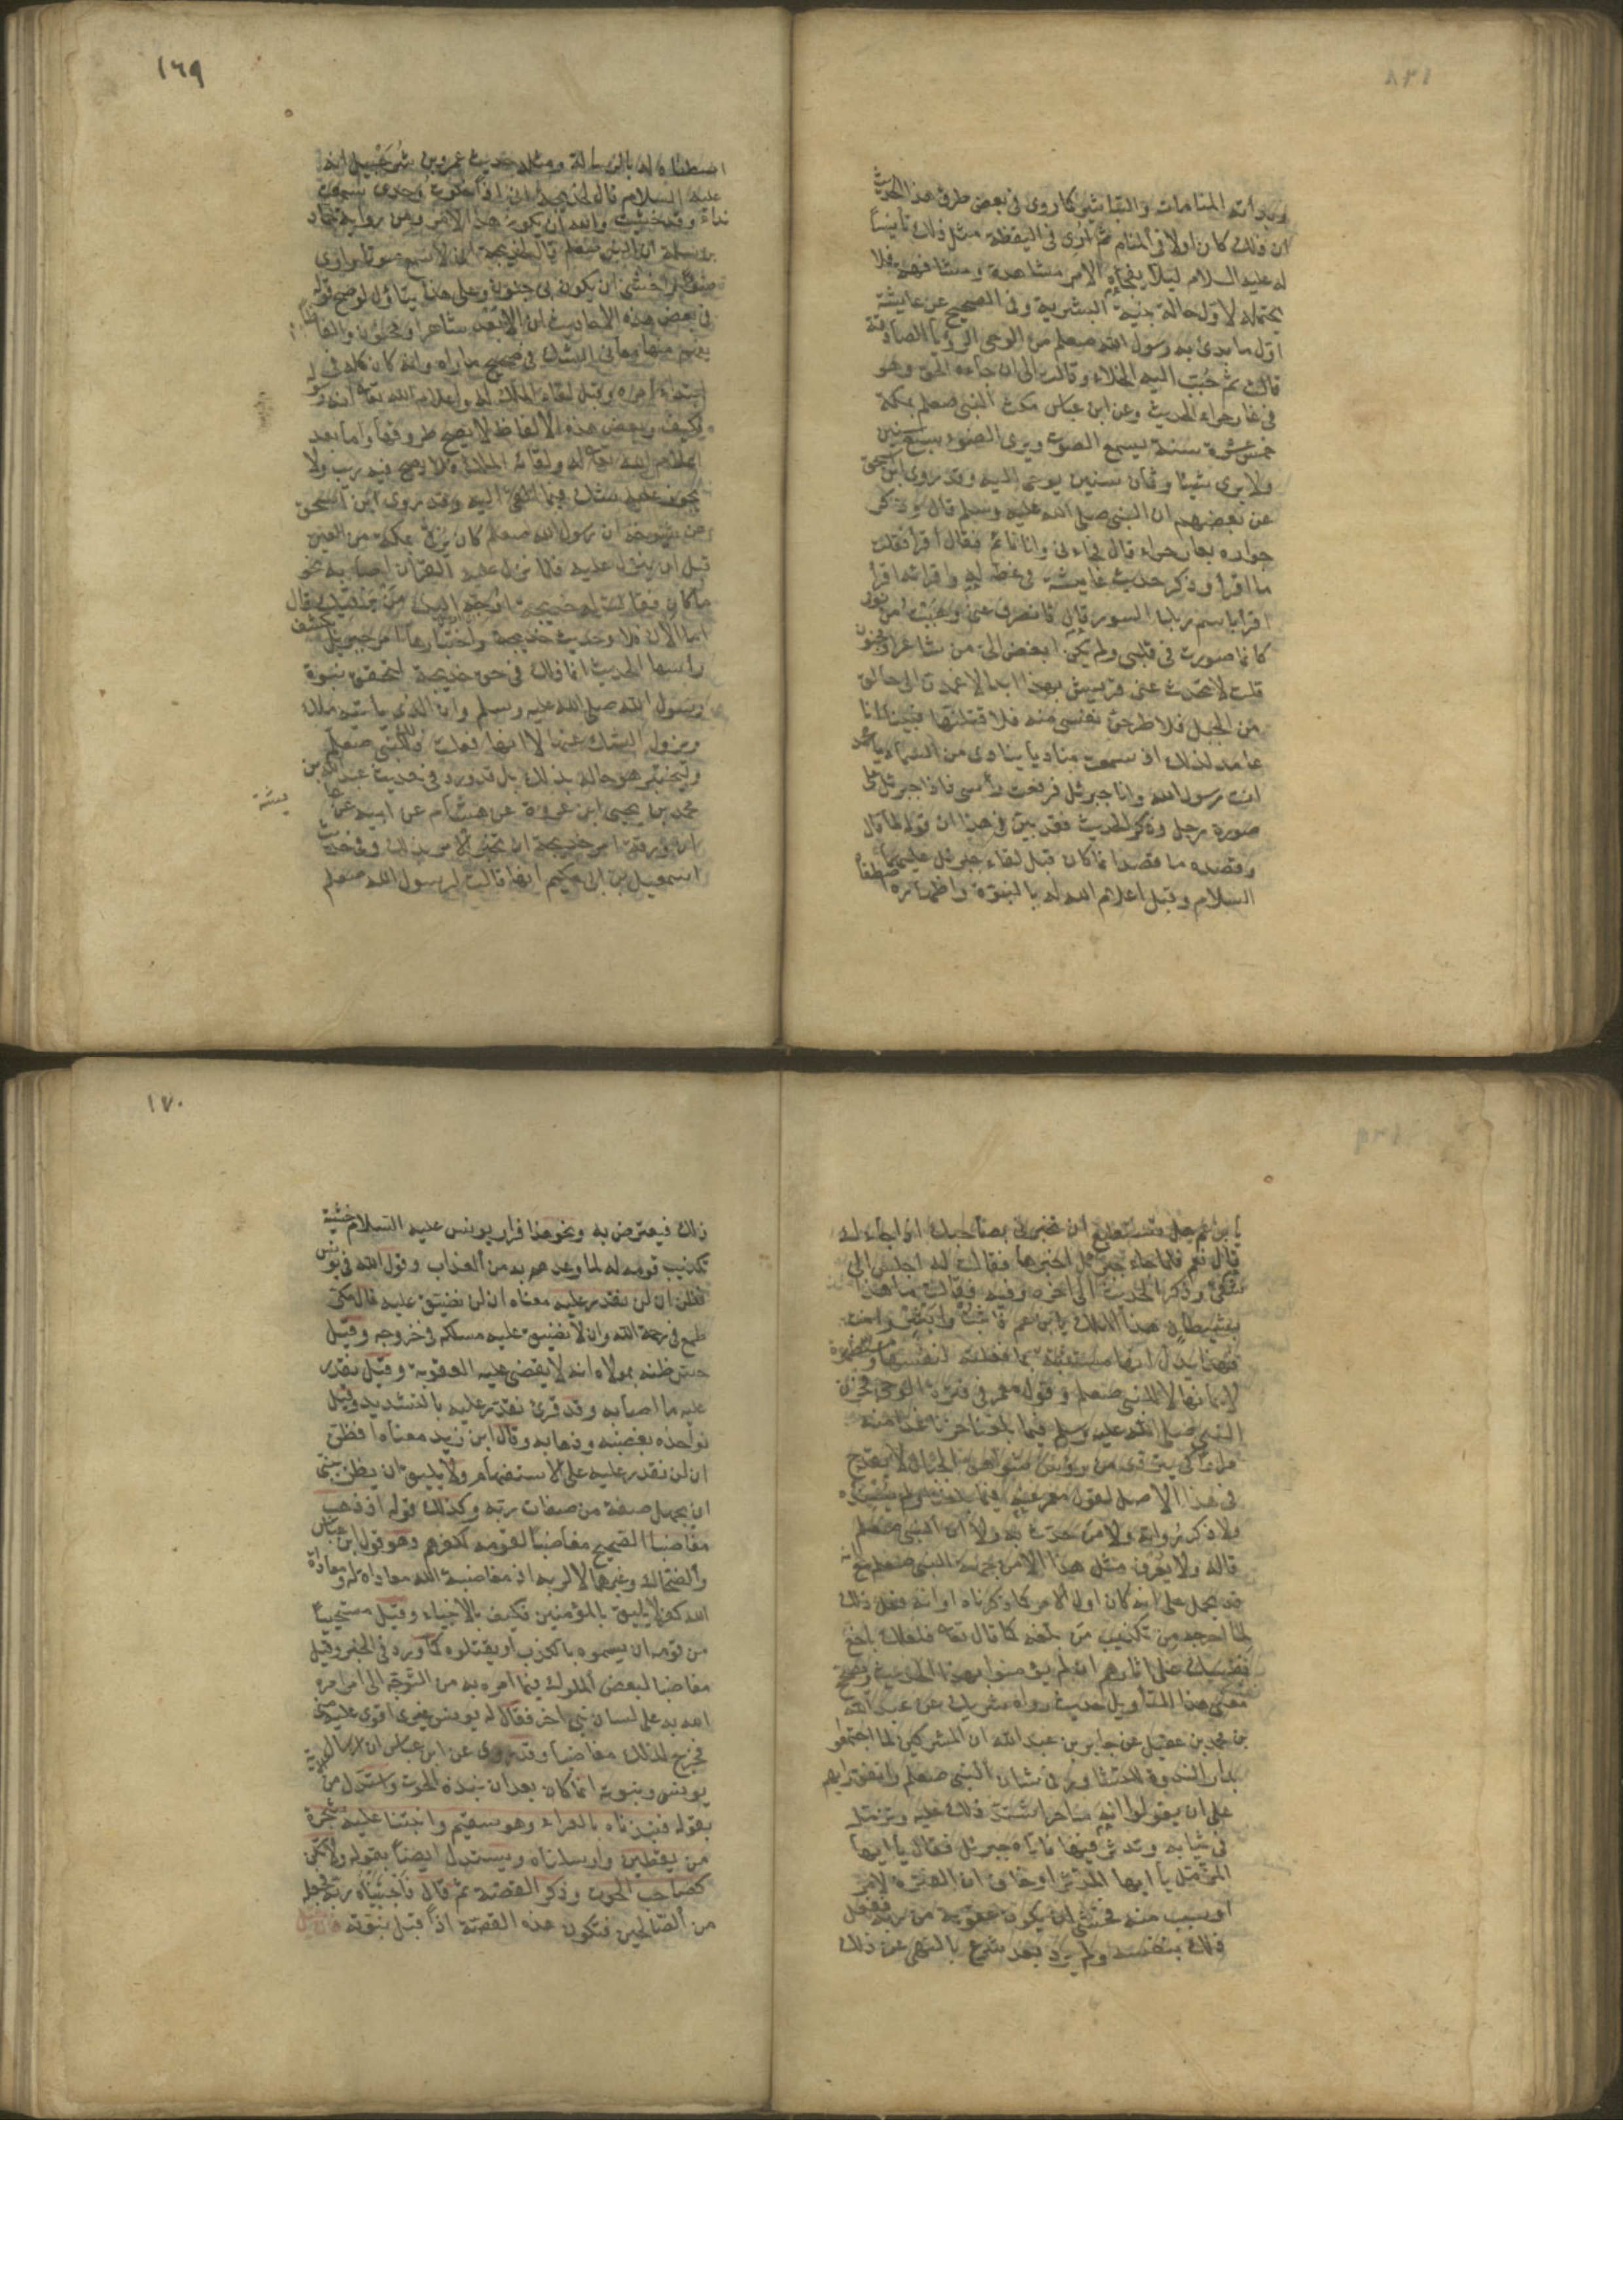 وبدأته المنامات والتباشير كما روى في بعض طرق هذا الحديث
ان ذلك كان اولا في المنام ثم ارى في اليقظة مثل ذلك تأنيسًا
له عليه السلام ليلا يفجأه الامر مشاهدة ومشافهة فلا
يحتمله لاول حالة بنية البشرية وفي الصحيح عن عايشة
اول ما بدئ به رسول الله صعلم من الوحي الرؤيا الصادقة
قالت ثم حبب اليه الخلاء وقالت الى ان جاءه الحق وهو
في غار حراء الحديث وعن ابن عباس مكث النبي صعلم بمكة
خمس عشرة سنة يسمع الصوت ويرى الضوء سبع سنين
ولا يرى شيئا وثمان سنين يوحى اليه وقد روى ابن اسحق
عن بعضهم ان النبي صلى الله عليه وسلم قال وذكر
جواره بغار حراء قال فجاءني وانا نائم فقال اقرأ فقلت
ما اقرأ وذكر حديث عايشة في غطه له واقرائه اقرأ
اقرأ باسم ربك السورة قال فانصرف عني وهببت من نومي
كانما صورت في قلبي ولم يكن ابغض الي من شاعر او مجنون
قلت لا تحدث عني قريش بهذا ابدا لاعمدن الى حالق
من الجبل فلاطرحن نفسي منه فلاقتلنها فبينا انا
عامد لذلك اذ سمعت مناديا ينادي من السماء يا محمد
انت رسول الله وانا جبرئل فرفعت رأسي فاذا جبرئل على
صورة رجل وذكر الحديث فقد بين في هذا ان قوله لما قال
وقصده ما قصد انما كان قبل لقاء جبرئل عليهما
السلام وقبل اعلام الله له بالنبوة واظهاره واصطفا
١٦٩
اصطفائه له بالرسالة ومثله حديث عمرو بن شرحبيل انه
عليه السلام قال لخديجة اني اذا خلوت وحدي سمعت
نداء وقد خشيت والله ان يكون هذا الامر ومن رواية حماد
بن سلمة ان النبي صعلم قال لخديجة اني لاسمع صوتا وارى
ضوءًا واخشى ان يكون بي جنون وعلى هذا يتأول لو صح قوله
في بعض هذه الاحاديث ان الابعد شاعر او مجنون والفاظا
يفهم منها معاني الشك في تصحيح ما رآه وانه كان كله في
ابتداء امره وقبل لقاء الملك له واعلام الله تعا له انه رسوله
فكيف وبعض هذه الالفاظ لا يصح طروقها واما بعد
اعلام الله تعا له ولقائه الملك فلا يصح فيه ريب ولا
يجوز عليه شك فيما القي اليه وقد روى ابن اسحق
عن شيوخه ان رسول الله صعلم كان يرقى بمكة من العين
قبل ان ينزل عليه فلما نزل عليه القرآن اصابه نحو
ما كان فقالت له خديجة اوجه اليك من يرقيك قال
اما الآن فلا وحديث خديجة واختبارها امر جبريل بكشف
راسها الحديث انما ذلك في حق خديجة لتحقق نبوة
رسول الله صلى الله عليه وسلم وان الذي يأتيه ملك
ويزول الشك عنها لا انها فعلت ذلك للنبي صعلم
وليختبر هو حاله بذلك بل قد ورد في حديث عبد الله بن
محمد بن يحيى ابن عروة عن هشام عن ابيه عن عا
يشة
ان ورقة امر خديجة ان تختبر الامر بذلك وفي حديث
اسمعيل بن ابي حكيم انها قالت لرسول الله صعلم
يا بن عم هل تستطيع ان تخبرني بصاحبك اذا جاءك
قال نعم فلما جاء جبرئل اخبرها فقالت له اجلس الى
شقي وذكر الحديث الى اخره وفيه فقالت ما هذا
بشيطان هذا الملك يا بن عم فاثبت وابشر وامنت
فهذا يدل انها مستثبتة بما فعلته لنفسها ومستظهرة
لايمانها لا للنبي صعلم وقول معمر في فترة الوحي فحزن
النبي صلى الله عليه وسلم فيما بلغنا حزنا غدا منه
مرارا كي يتردى من رؤس شواهق الجبال لا يقدح
في هذا الاصل لقول معمر عنه فيما بلغنا ولم يسنده
ولا ذكر رواته ولا من حدث به ولا ان النبي صعلم
قاله ولا يعرف مثل هذا الا من جهة النبي صعلم مع انه
قد يحمل على انه كان اول الامر كما ذكرناه او انه فعل ذلك
لما احرجه من تكذيب من بلغه كما قال تعا فلعلك باخع
نفسك على اثارهم ان لم يؤمنوا بهذا الحديث ويصحح
معنى هذا التأويل حديث رواه شريك عن عبد الله
بن محمد بن عقيل عن جابر بن عبد الله ان المشركين لما اجتمعوا
بدار الندوة للتشاور في شان النبي صعلم واتفق رايهم
على ان يقولوا انه ساحر اشتد ذلك عليه وتزمل
في ثيابه وتدثر فيها فاتاه جبريل فقال يا ايها
المزمل يا ايها المدثر او خاف ان الفترة لامر
او سبب منه فخشي ان يكون عقوبة من ربه ففعل
ذلك بنفسه ولم يرد بعد شرع بالنهي عن ذلك
١٧٠
ذلك فيعترض به ونحو هذا فرار يونس عليه السلام خشية
تكذيب قومه له لما وعدهم به من العذاب وقول الله في يونس
فظن ان لن نقدر عليه معناه ان لن نضيق عليه قال مكي
طمع في رحمة الله وان لا يضيق عليه مسلكه في خروجه وقيل
حسن ظنه بمولاه انه لا يقضي عليه العقوبة وقيل نقدر
عليه ما اصابه وقد قرئ نقدر عليه بالتشديد وقيل
نواخذه بغضبه وذهابه وقال ابن زيد معناه افظن
ان لن نقدر عليه على الاستفهام ولا يليق ان يظن بنبي
ان يجهل صفة من صفات ربه وكذلك قوله اذ ذهب
مغاضبا الصحيح مغاضبا لقومه لكفرهم وهو قول ابن عباس
والضحاك وغيرهما لا لربه اذ مغاضبة الله معاداة له ومعاداة
الله كفر لا يليق بالمؤمنين فكيف بالانبياء وقيل مستحييا
من قومه ان يسموه بالكذب او يقتلوه كما ورد في الخبر وقيل
مغاضبا لبعض الملوك فيما امره به من التوجه الى امر امره
الله به على لسان نبي اخر فقال له يونس غيري اقوى عليه مني
فخرج لذلك مغاضبا وقد روي عن ابن عباس ان ارسال
يونس ونبوته انما كان بعد ان نبذه الحوت واستدل من الاية
بقوله فنبذناه بالعراء وهو سقيم وانبتنا عليه شجرة
من يقطين وارسلناه ويستدل ايضا بقوله ولا تكن
كصاحب الحوت وذكر القصة ثم قال فاجتبيه ربه فجعله
من الصالحين فتكون هذه القصة اذًا قبل نبوته فان قيل